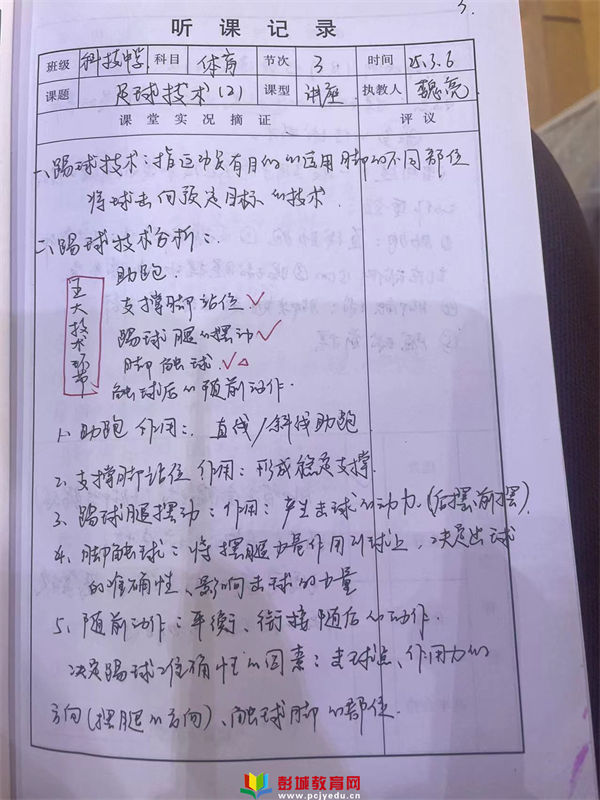 3.
听课记录
班级 科技中学 科目 体育 节次 3 时间 25.3.6
课题 足球技术(2) 课型 讲座 执教人 魏亮
课堂实况摘记 评议
一、踢球技术:指运动员有目的的运用脚的不同部位
将球击向预定目标的技术.
二、踢球技术分析:
五大技术环节
助跑
支撑脚站位 ✓
踢球腿的摆动 ✓
脚触球 ✓△
触球后的随前动作.
1、助跑 作用: 直线/斜线助跑
2、支撑脚站位 作用:形成稳定支撑.
3、踢球腿摆动:作用:产生击球的动力.(后摆前摆).
4、脚触球:将摆腿力量作用到球上,决定出球
的准确性、影响击球的力量
5、随前动作:平衡、衔接随后的动作.
决定踢球准确性的因素:击球点、作用力的
方向(摆腿的方向)、触球脚的部位.
彭城教育网
www.pcjyedu.cn